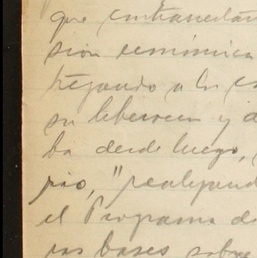 que contrarrestar
sión económica
tregando a los
su liberacion y
ba desde luego,
pio, "realizando
el Programa de
las bases sobre